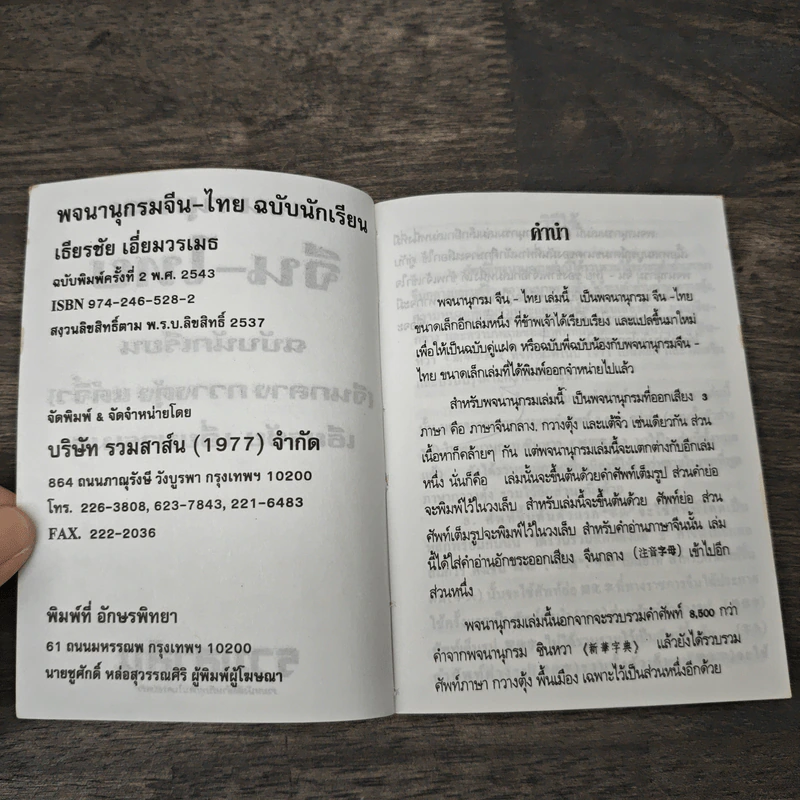 พจนานุกรมจีน-ไทย ฉบับนักเรียน
เธียรชัย เอี่ยมวรเมธ
ฉบับพิมพ์ครั้งที่ 2 พ.ศ. 2543
ISBN 974-246-528-2
สงวนลิขสิทธิ์ตาม พ.ร.บ.ลิขสิทธิ์ 2537
จัดพิมพ์ & จัดจำหน่ายโดย
บริษัท รวมสาส์น (1977) จำกัด
864 ถนนภาณุรังษี วังบูรพา กรุงเทพฯ 10200
โทร. 226-3808, 623-7843, 221-6483
FAX. 222-2036
พิมพ์ที่ อักษรพิทยา
61 ถนนมหรรณพ กรุงเทพฯ 10200
นายชูศักดิ์ หล่อสุวรรณศิริ ผู้พิมพ์ผู้โฆษณา
คำนำ
พจนานุกรม จีน - ไทย เล่มนี้ เป็นพจนานุกรม จีน -ไทย
ขนาดเล็กอีกเล่มหนึ่ง ที่ข้าพเจ้าได้เรียบเรียง และแปลขึ้นมาใหม่
เพื่อให้เป็นฉบับคู่แฝด หรือฉบับพี่ฉบับน้องกับพจนานุกรมจีน -
ไทย ขนาดเล็กเล่มที่ได้พิมพ์ออกจำหน่ายไปแล้ว
สำหรับพจนานุกรมเล่มนี้ เป็นพจนานุกรมที่ออกเสียง 3
ภาษา คือ ภาษาจีนกลาง, กวางตุ้ง และแต้จิ๋ว เช่นเดียวกัน ส่วน
เนื้อหาก็คล้ายๆ กัน แต่พจนานุกรมเล่มนี้จะแตกต่างกับอีกเล่ม
หนึ่ง นั่นก็คือ เล่มนั้นจะขึ้นต้นด้วยคำศัพท์เต็มรูป ส่วนคำย่อ
จะพิมพ์ไว้ในวงเล็บ สำหรับเล่มนี้จะขึ้นต้นด้วย ศัพท์ย่อ ส่วน
ศัพท์เต็มรูปจะพิมพ์ไว้ในวงเล็บ สำหรับคำอ่านภาษาจีนนั้น เล่ม
นี้ได้ใส่คำอ่านอักขระออกเสียง จีนกลาง (注音字母) เข้าไปอีก
ส่วนหนึ่ง
พจนานุกรมเล่มนี้นอกจากจะรวบรวมคำศัพท์ 8,500 กว่า
คำจากพจนานุกรม ซินหวา 《新華字典》 แล้วยังได้รวบรวม
ศัพท์ภาษา กวางตุ้ง พื้นเมือง เฉพาะไว้เป็นส่วนหนึ่งอีกด้วย